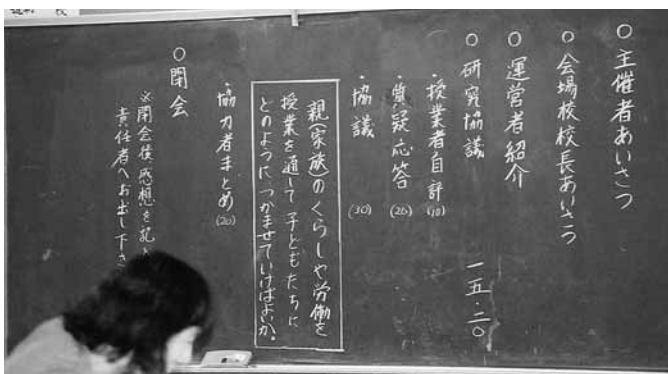 ○主催者あいさつ
○会場校校長あいさつ
○運営者紹介
○研究協議 一五・二〇
・授業者自評(10)
・質疑応答(20)
・協議(30)
親(家族)のくらしや労働を
授業を通して子どもたちに
どのようにつかませていけばよいか。
・協力者まとめ(20)
○閉会
※閉会後、感想を記入
責任者へお出し下さ